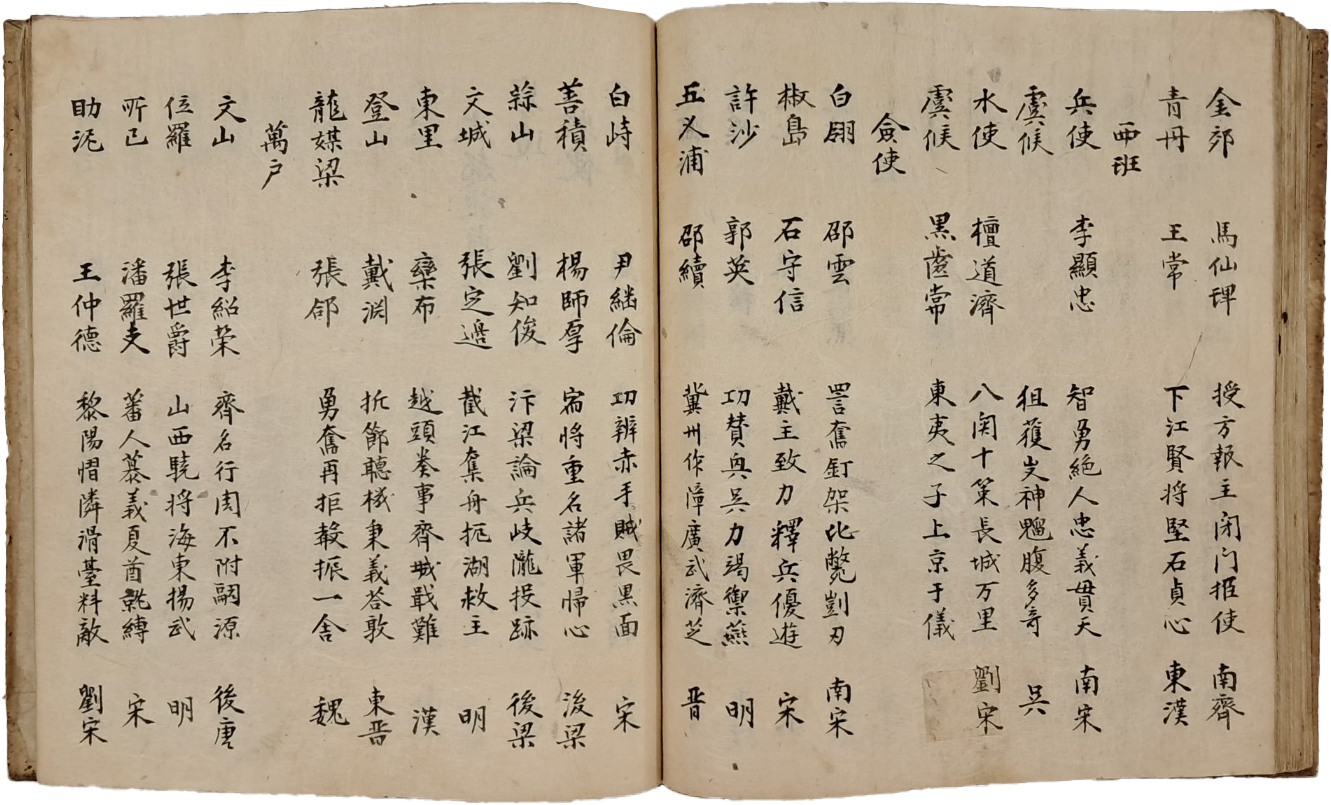 金郊 馬仙琕 授方報主閉门拒使 南齊
青丹 王常 下江賢将堅石貞心 東漢
西班
兵使 李顯忠 智勇絶人忠義貫天 南宋
虞候 狙獲 神魑腹多奇 呉
水使 檀道濟 八関十策長城万里 劉宋
虞候 黒齒常 東夷之子上京于儀
僉使
白翎 邵雲 詈奮釘架比斃剴刃 南宋
椒島 石守信 戴主致力釋兵優遊 宋
許沙 郭英 功賛與呉力竭禦燕 明
五乂浦 邵續 冀州作障廣武濟芝 晋
白峙 尹継倫 功辨赤手賊畏黒面 宋
善積 楊師厚 宿將重名諸軍帰心 後梁
蒜山 劉知俊 汴梁論兵岐隴投跡 後梁
文城 張定邊 截江奪舟扼湖救主 明
東里 欒布 越頭奏事齊城戢難 漢
登山 戴淵 折節聴機秉義答敦 東晋
龍媒梁 張郃 勇奮再拒毅振一舎 魏
萬戶
文山 李紹荣 齊名行周不附嗣源 後唐
位羅 張世爵 山西驍将海東揚武 明
所已 潘羅支 蕃人慕義夏酋就縛 宋
助泥 王仲德 黎陽慴隣滑臺料敵 劉宋